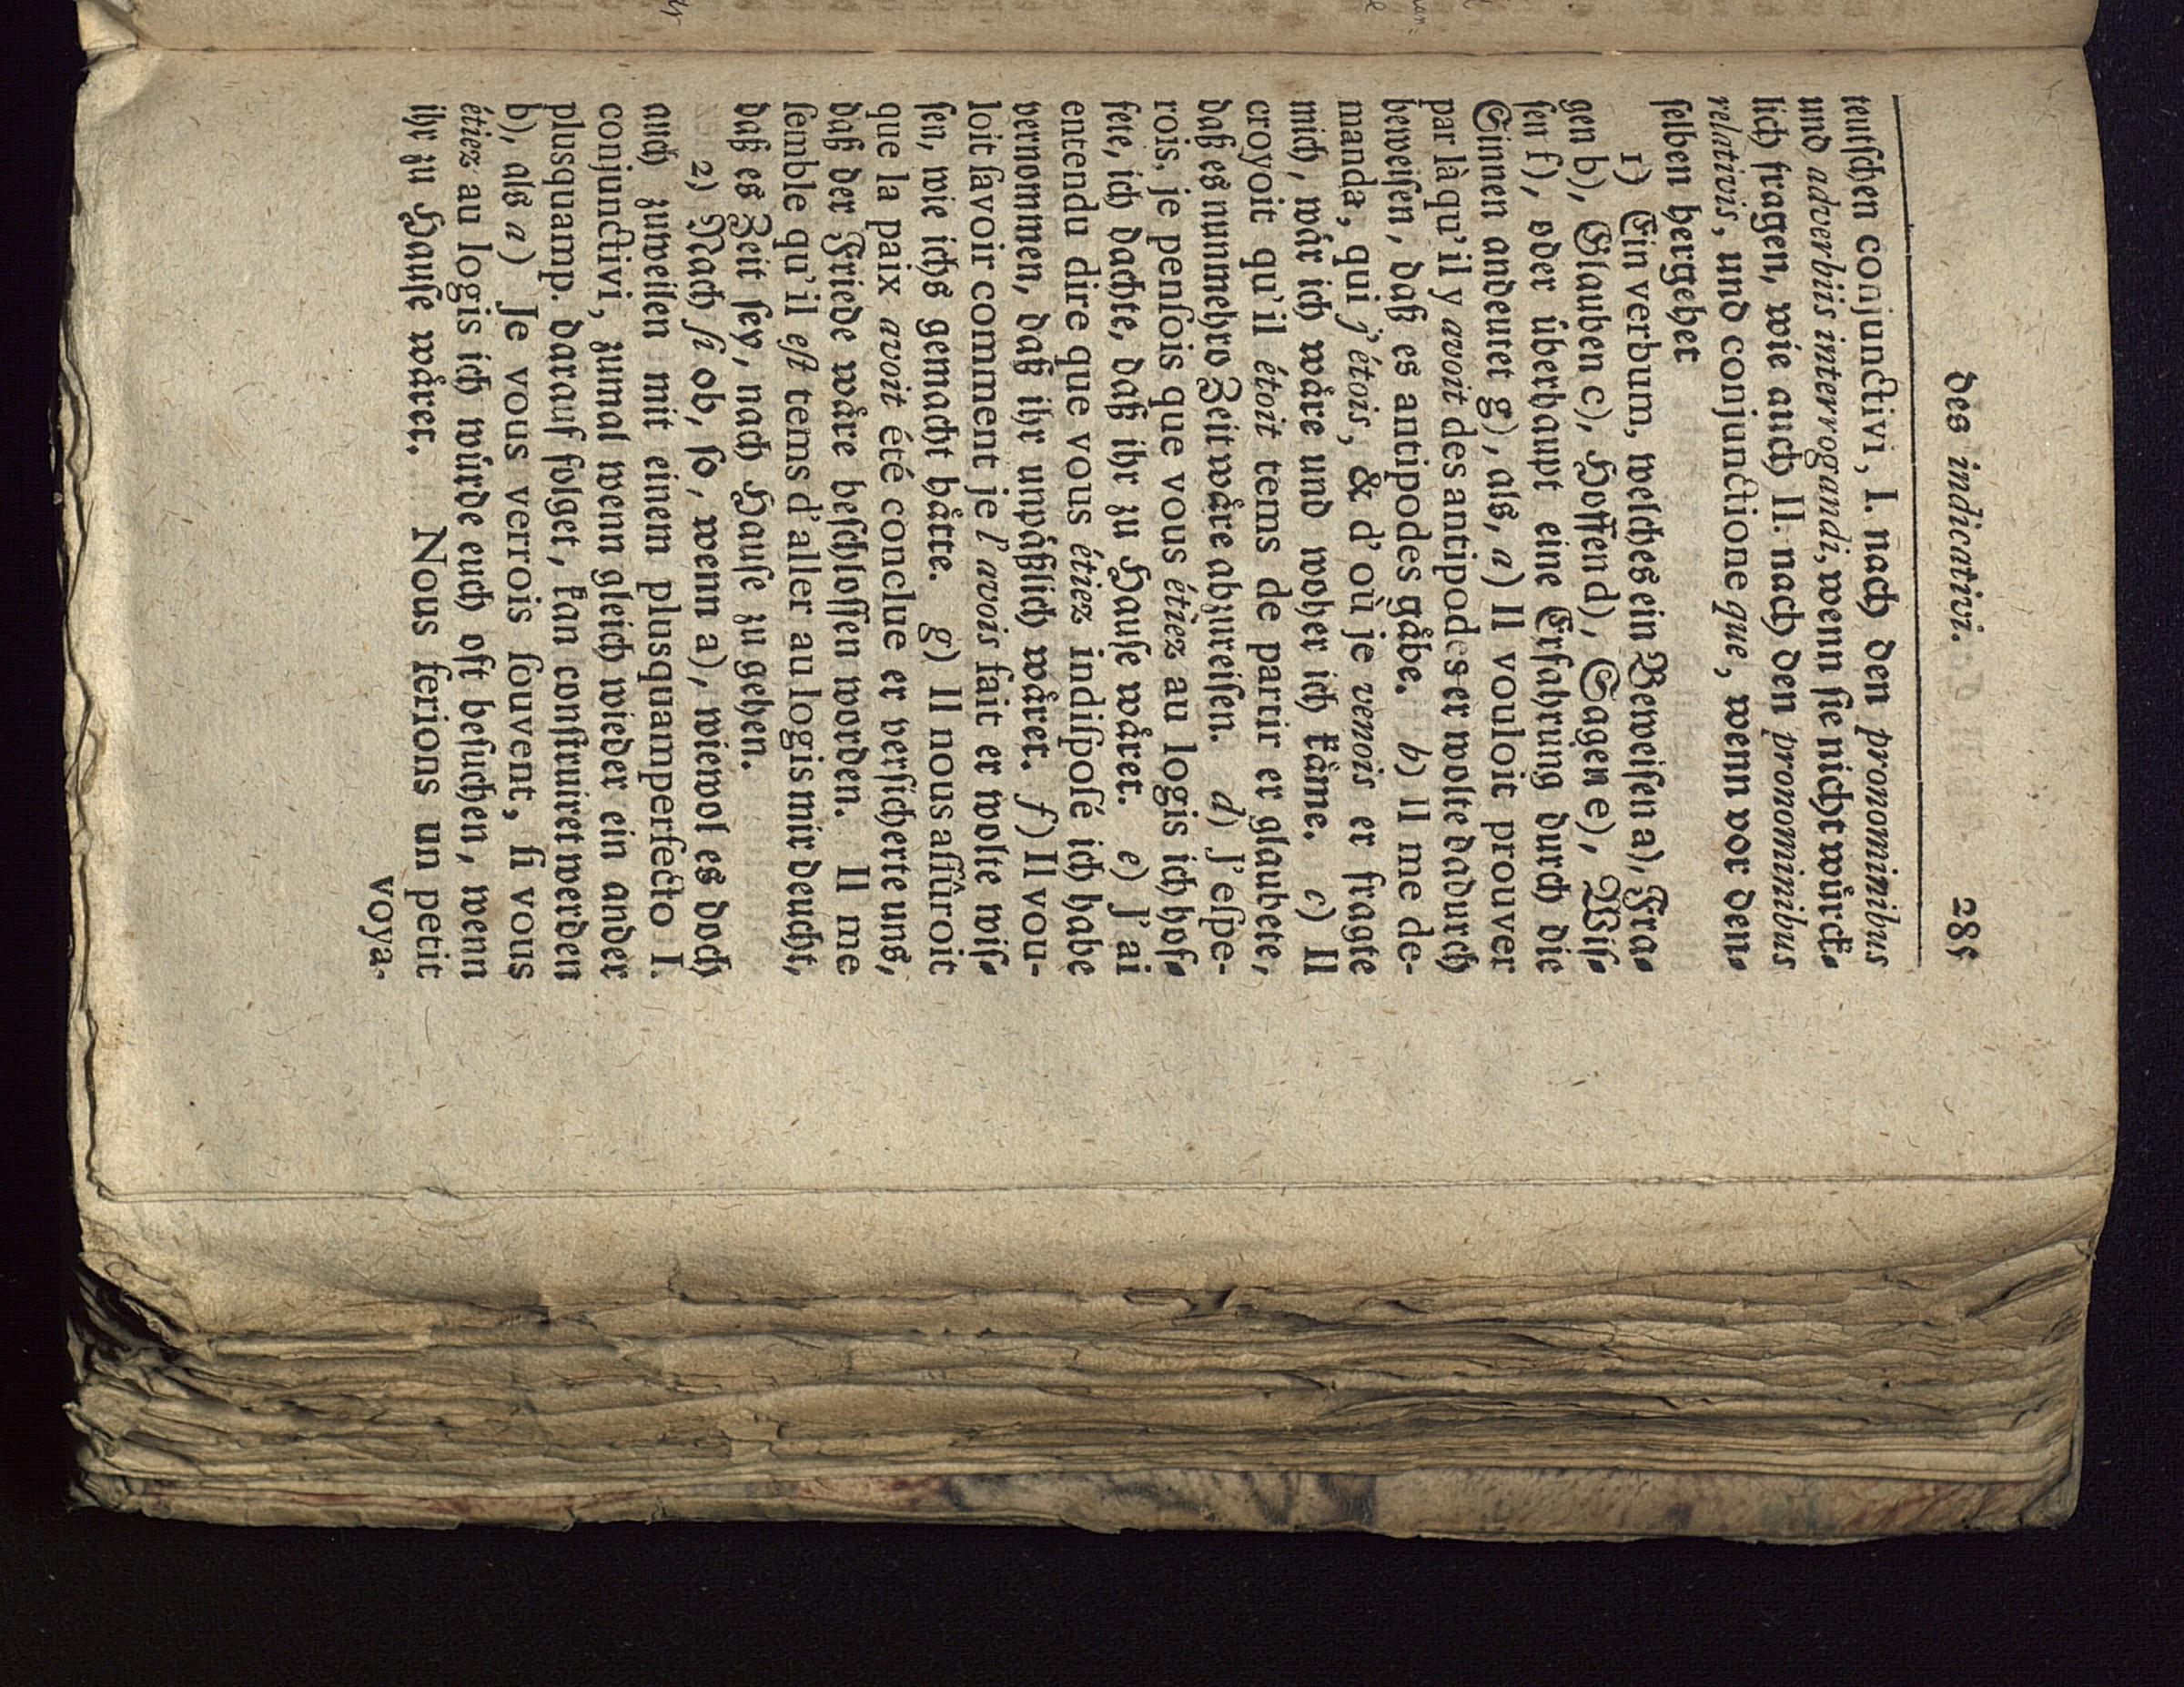 des indicativi. 285
teutschen conjunctivi, I. nach den pronominibus
und adverbiis interrogandi, wenn sie nicht würck-
lich fragen, wie auch II. nach den pronominibus
relativis, und conjunctione que, wenn vor den-
selben hergehet
1) Ein verbum, welches ein Beweisen a), Fra-
gen b), Glauben c), Hoffen d), Sagen e), Wis-
sen f), oder überhaupt eine Erfahrung durch die
Sinnen andeutet g), als, a) Il vouloit prouver
par là qu'il y avoit des antipodes er wolte dadurch
beweisen, daß es antipodes gåbe. b) Il me de-
manda, qui j'étois, & d'où je venois er fragte
mich, wår ich wåre und woher ich kåme. c) Il
croyoit qu'il étoit tems de partir er glaubete,
daß es nunmehro Zeit wåre abzureisen. d) J'eſpe-
rois, je penſois que vous étiez au logis ich hof-
fete, ich dachte, daß ihr zu Hauſe wåret. e) J'ai
entendu dire que vous étiez indiſpoſé ich habe
vernommen, daß ihr unpåßlich wåret. f) Il vou-
loit ſavoir comment je l'avois fait er wolte wiſ-
ſen, wie ichs gemacht håtte. g) Il nous aſſûroit
que la paix avoit été conclue er verſicherte uns,
daß der Friede wåre beſchloſſen worden. Il me
ſemble qu'il eſt tems d'aller au logis mir deucht,
daß es Zeit ſey, nach Hauſe zu gehen.
2) Nach ſi ob, ſo, wenn a), wiewol es doch
auch zuweilen mit einem plusquamperfecto I.
conjunctivi, zumal wenn gleich wieder ein ander
plusquamp. darauf folget, kan conſtruiret werden
b), als a) Je vous verrois ſouvent, ſi vous
étiez au logis ich würde euch oft beſuchen, wenn
ihr zu Hauſe wåret. Nous ferions un petit
voya-